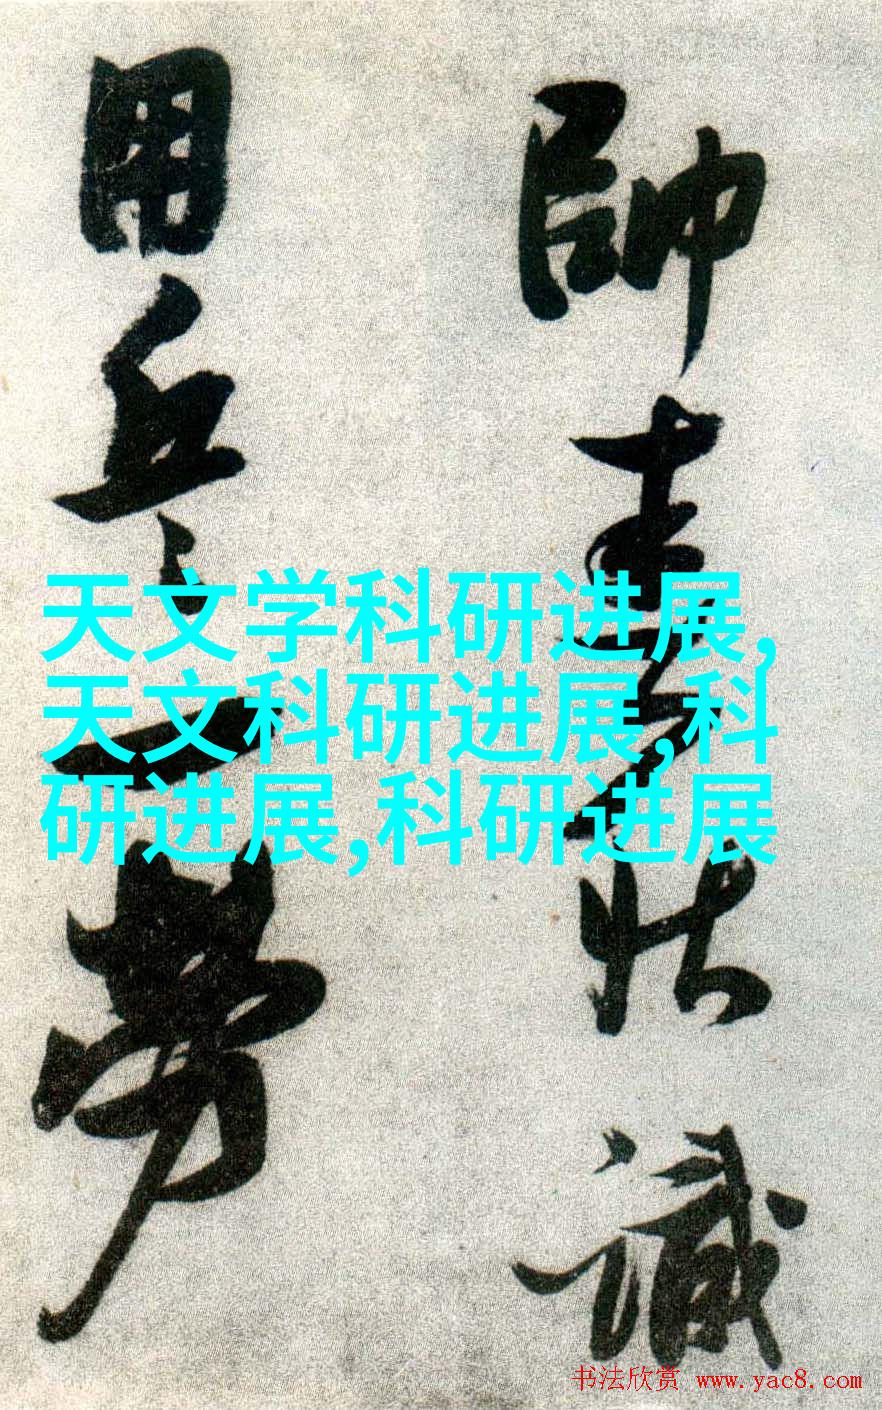 帥 識
用兵之一勞
天文学科研进展,
天文科研进展,科
研进展,科研进展
书法欣赏 www.yac8.com